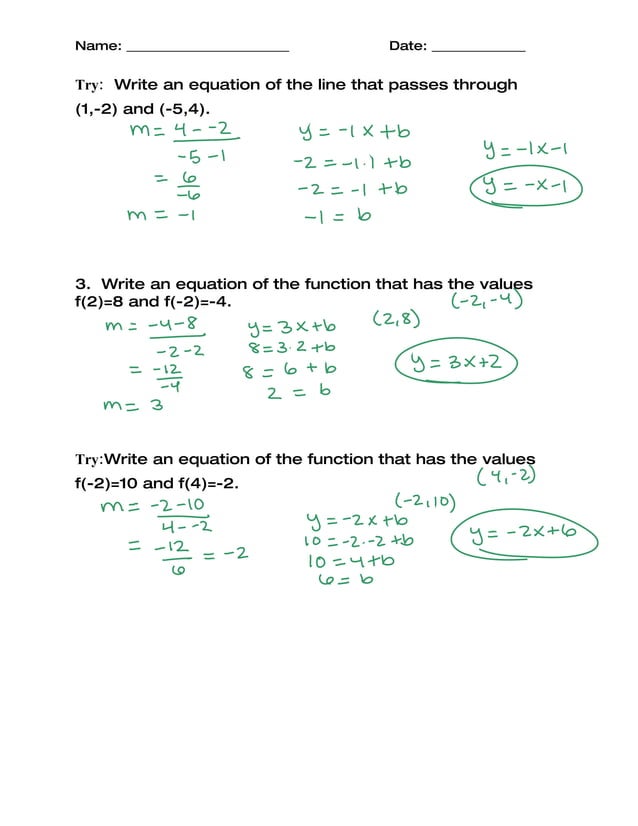 Name: ____________________ Date: ____________
Try: Write an equation of the line that passes through
(1,-2) and (-5,4).
m = 4 - -2 / -5 - 1
= 6 / -6
m = -1
y = -1x + b
-2 = -1·1 + b
-2 = -1 + b
-1 = b
y = -1x - 1
y = -x - 1
3. Write an equation of the function that has the values
f(2)=8 and f(-2)=-4.
(-2, -4)
(2,8)
m = -4 - 8 / -2 - 2
= -12 / -4
m = 3
y = 3x + b
8 = 3·2 + b
8 = 6 + b
2 = b
y = 3x + 2
Try:Write an equation of the function that has the values
f(-2)=10 and f(4)=-2.
(4, -2)
(-2, 10)
m = -2 - 10 / 4 - -2
= -12 / 6 = -2
y = -2x + b
10 = -2·-2 + b
10 = 4 + b
6 = b
y = -2x + 6